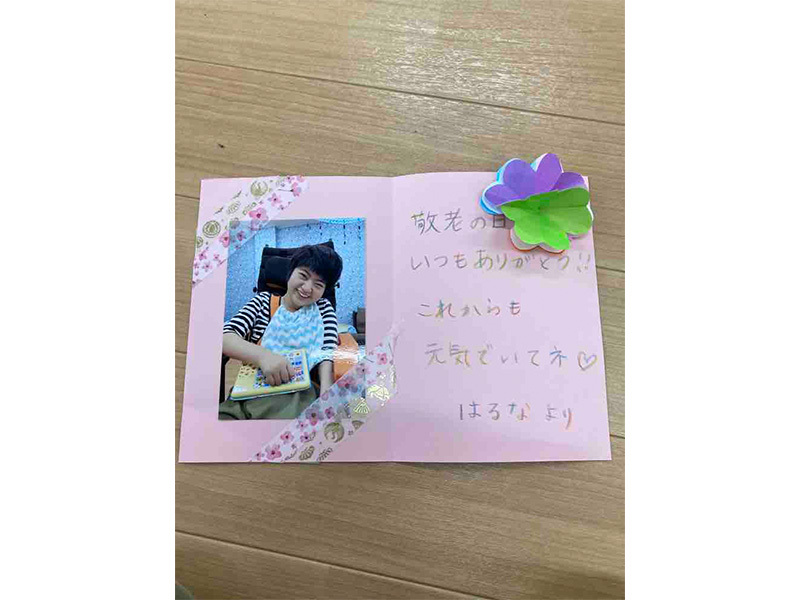 敬老の日
いつもありがとう!!
これからも
元気でいてネ♡
はるなより